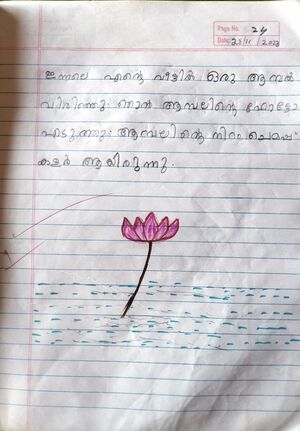 Page No. 24
Date: 25/11/2023
ഇന്നലെ എന്റെ വീട്ടിൽ ഒരു ആമ്പൽ
വിരിഞ്ഞു. ഞാൻ ആമ്പലിന്റെ ഫോട്ടോ
എടുത്തു. ആമ്പലിന്റെ നിറം ചെമപ്പ്
കളർ ആയിരുന്നു.